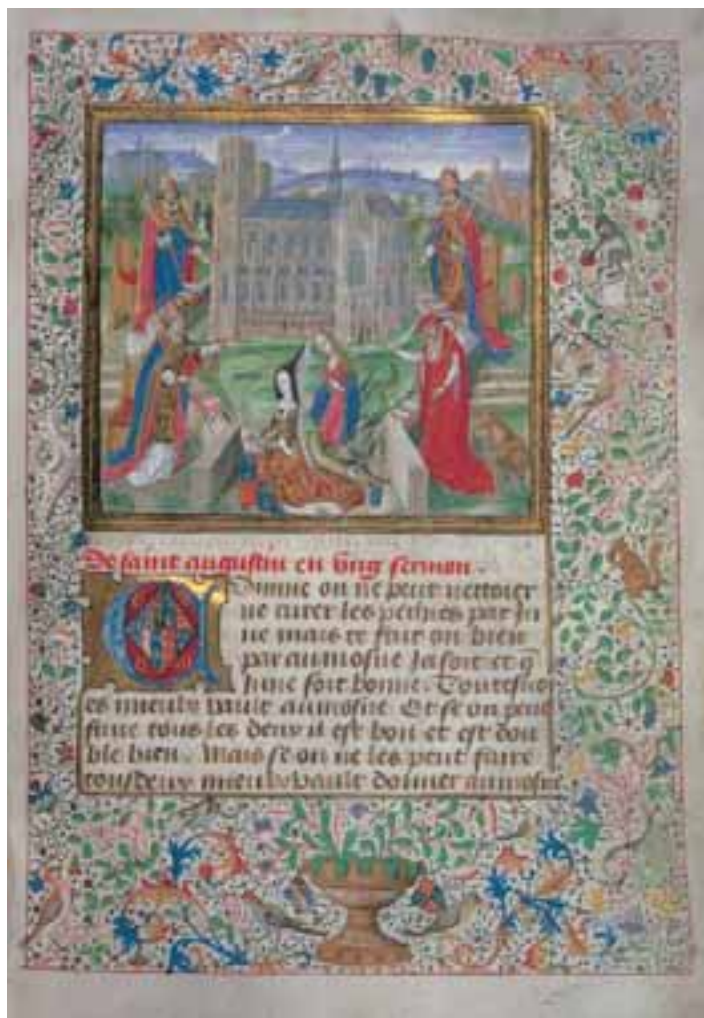 De saint augustin en ung sermon .
Comme on ne peut nettoier
ne curer les pechies par Ju
ne mais ce fait on bien
par aumosne Ja soit ce q
June soit bonne. Toutesuoi
es mieulx vault aumosne. Et se on peut
faire tous les deux il est bon et est dou
ble bien. Mais se on ne les peut faire
tous deux mieulx vault donner aumosne